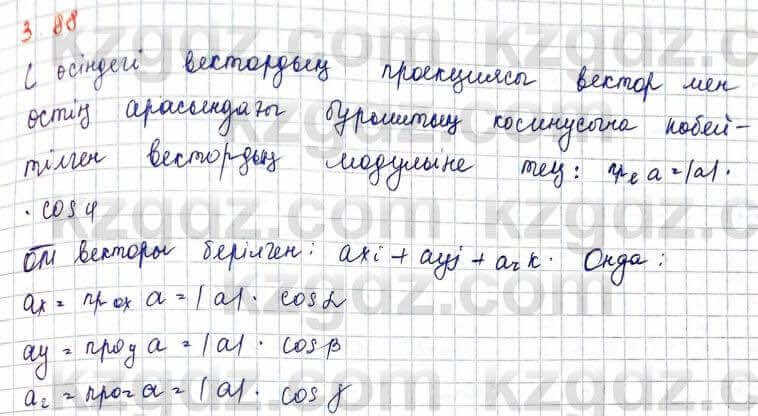 3.88
ℓ осіндегі вектордың проекциясы вектор мен
остің арасындағы бұрыштың косинусына көбей-
тілген вектордың модуліне тең: прℓ a = |a| ·
· cos φ
OM векторы берілген: axi + ayj + azk. Онда:
ax = прox a = |a| · cos α
ay = прoy a = |a| · cos β
az = прoz a = |a| · cos γ
kzgdz.com